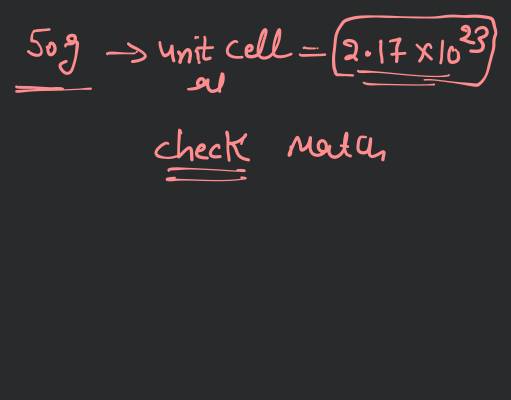 50g → unit cell = 2.17 × 10²³
check match